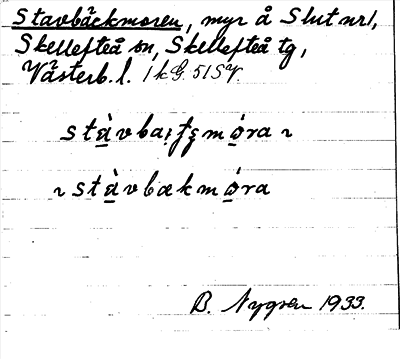 Stavbäckmoren, myr å Slut nr 1,
Skellefteå sn, Skellefteå tg,
Västerb. l. 1 k G. 51 SV.
stàvbai̯ʈʂmóra ~
~ stàvbækmóra
B. Nygren 1933.